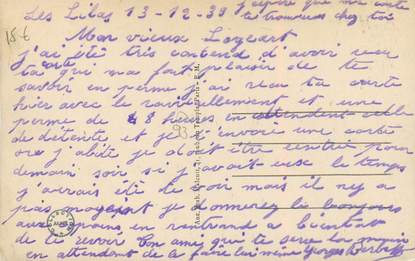 j'espère que ma carte
Les Lilas 13-12-39 te trouvera chez toi
18 €
Mon vieux
j'ai été très contend d'avoir reçu
ta carte que ma fait plaisir de te
savoir en perme j'ai reçu ta carte
hier avec le ravitaillement et une
perme de 48 heures en attendent celle
de détente et je t'envoie une carte
je doit être rentré pour
demain soir si j'avait eu le temps
j'aurais été te voir mais il ny a
pas moyen je donnerez le bonjour
aux en rentrand a bientot
de te revoir Ton ami qui te serre la main
en attendent de le faire lui meme Georges